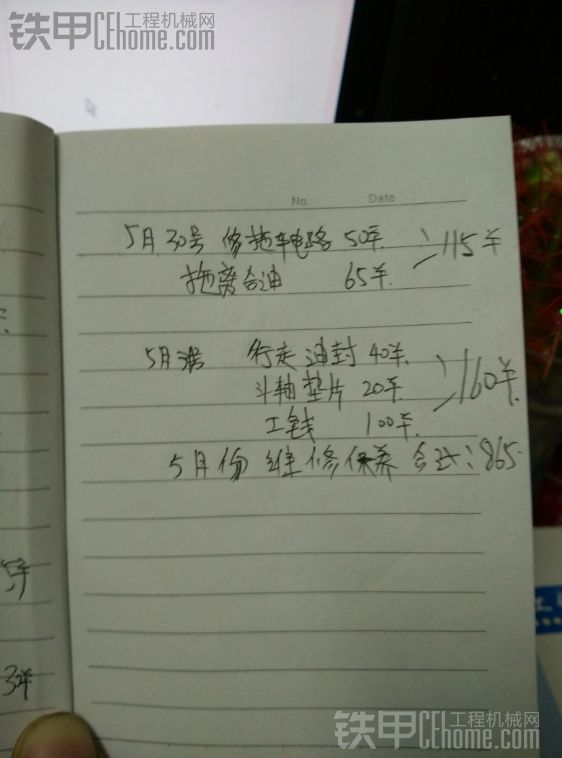 铁甲 工程机械网
CEhome.com
No. Date
5月30号 修拖车电路 50元 } 115元
拖离合油 65元
5月 行走油封 40元
斗轴垫片 20元 } 160元
工钱 100元
5月份维修保养合计:865
5元
32元
铁甲 工程机械网
CEhome.com